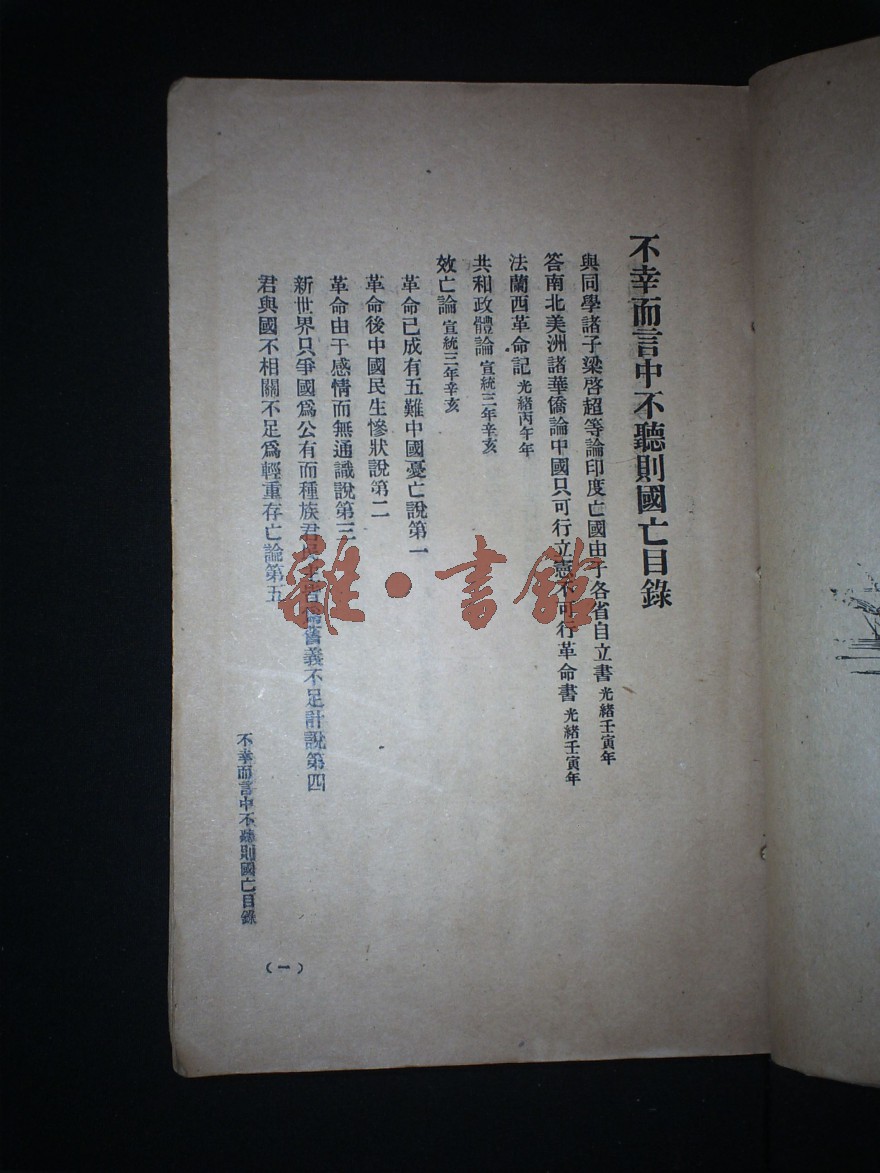 不幸而言中不聽則國亡目錄
與同學諸子梁啓超等論印度亡國由于各省自立書 光緒壬寅年
答南北美洲諸華僑論中國只可行立憲不可行革命書 光緒壬寅年
法蘭西革命記 光緒丙午年
共和政體論 宣統三年辛亥
效亡論 宣統三年辛亥
革命已成有五難中國憂亡說第一
革命後中國民生慘狀說第二
革命由于感情而無通識說第三
新世界只爭國爲公有而種族君民 舊義不足計說第四
君與國不相關不足爲輕重存亡論第五
不幸而言中不聽則國亡目錄
(一)
雜·書館